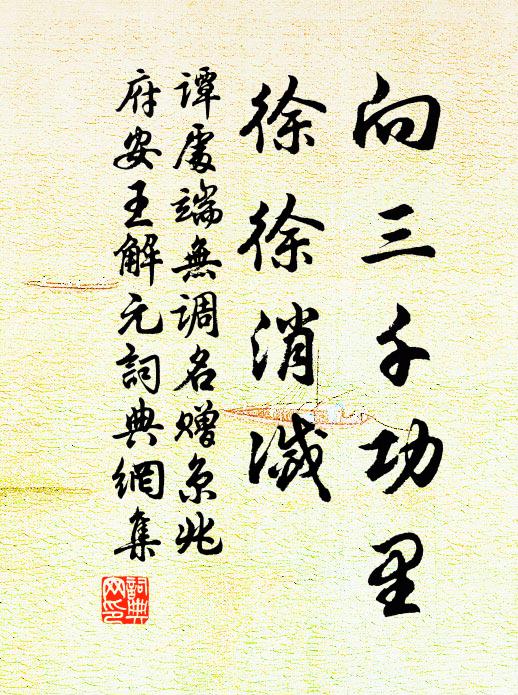 向三千功里
徐徐消滅
谭處端無调名赠京兆
府安王解元詞典網集
詞典
网印